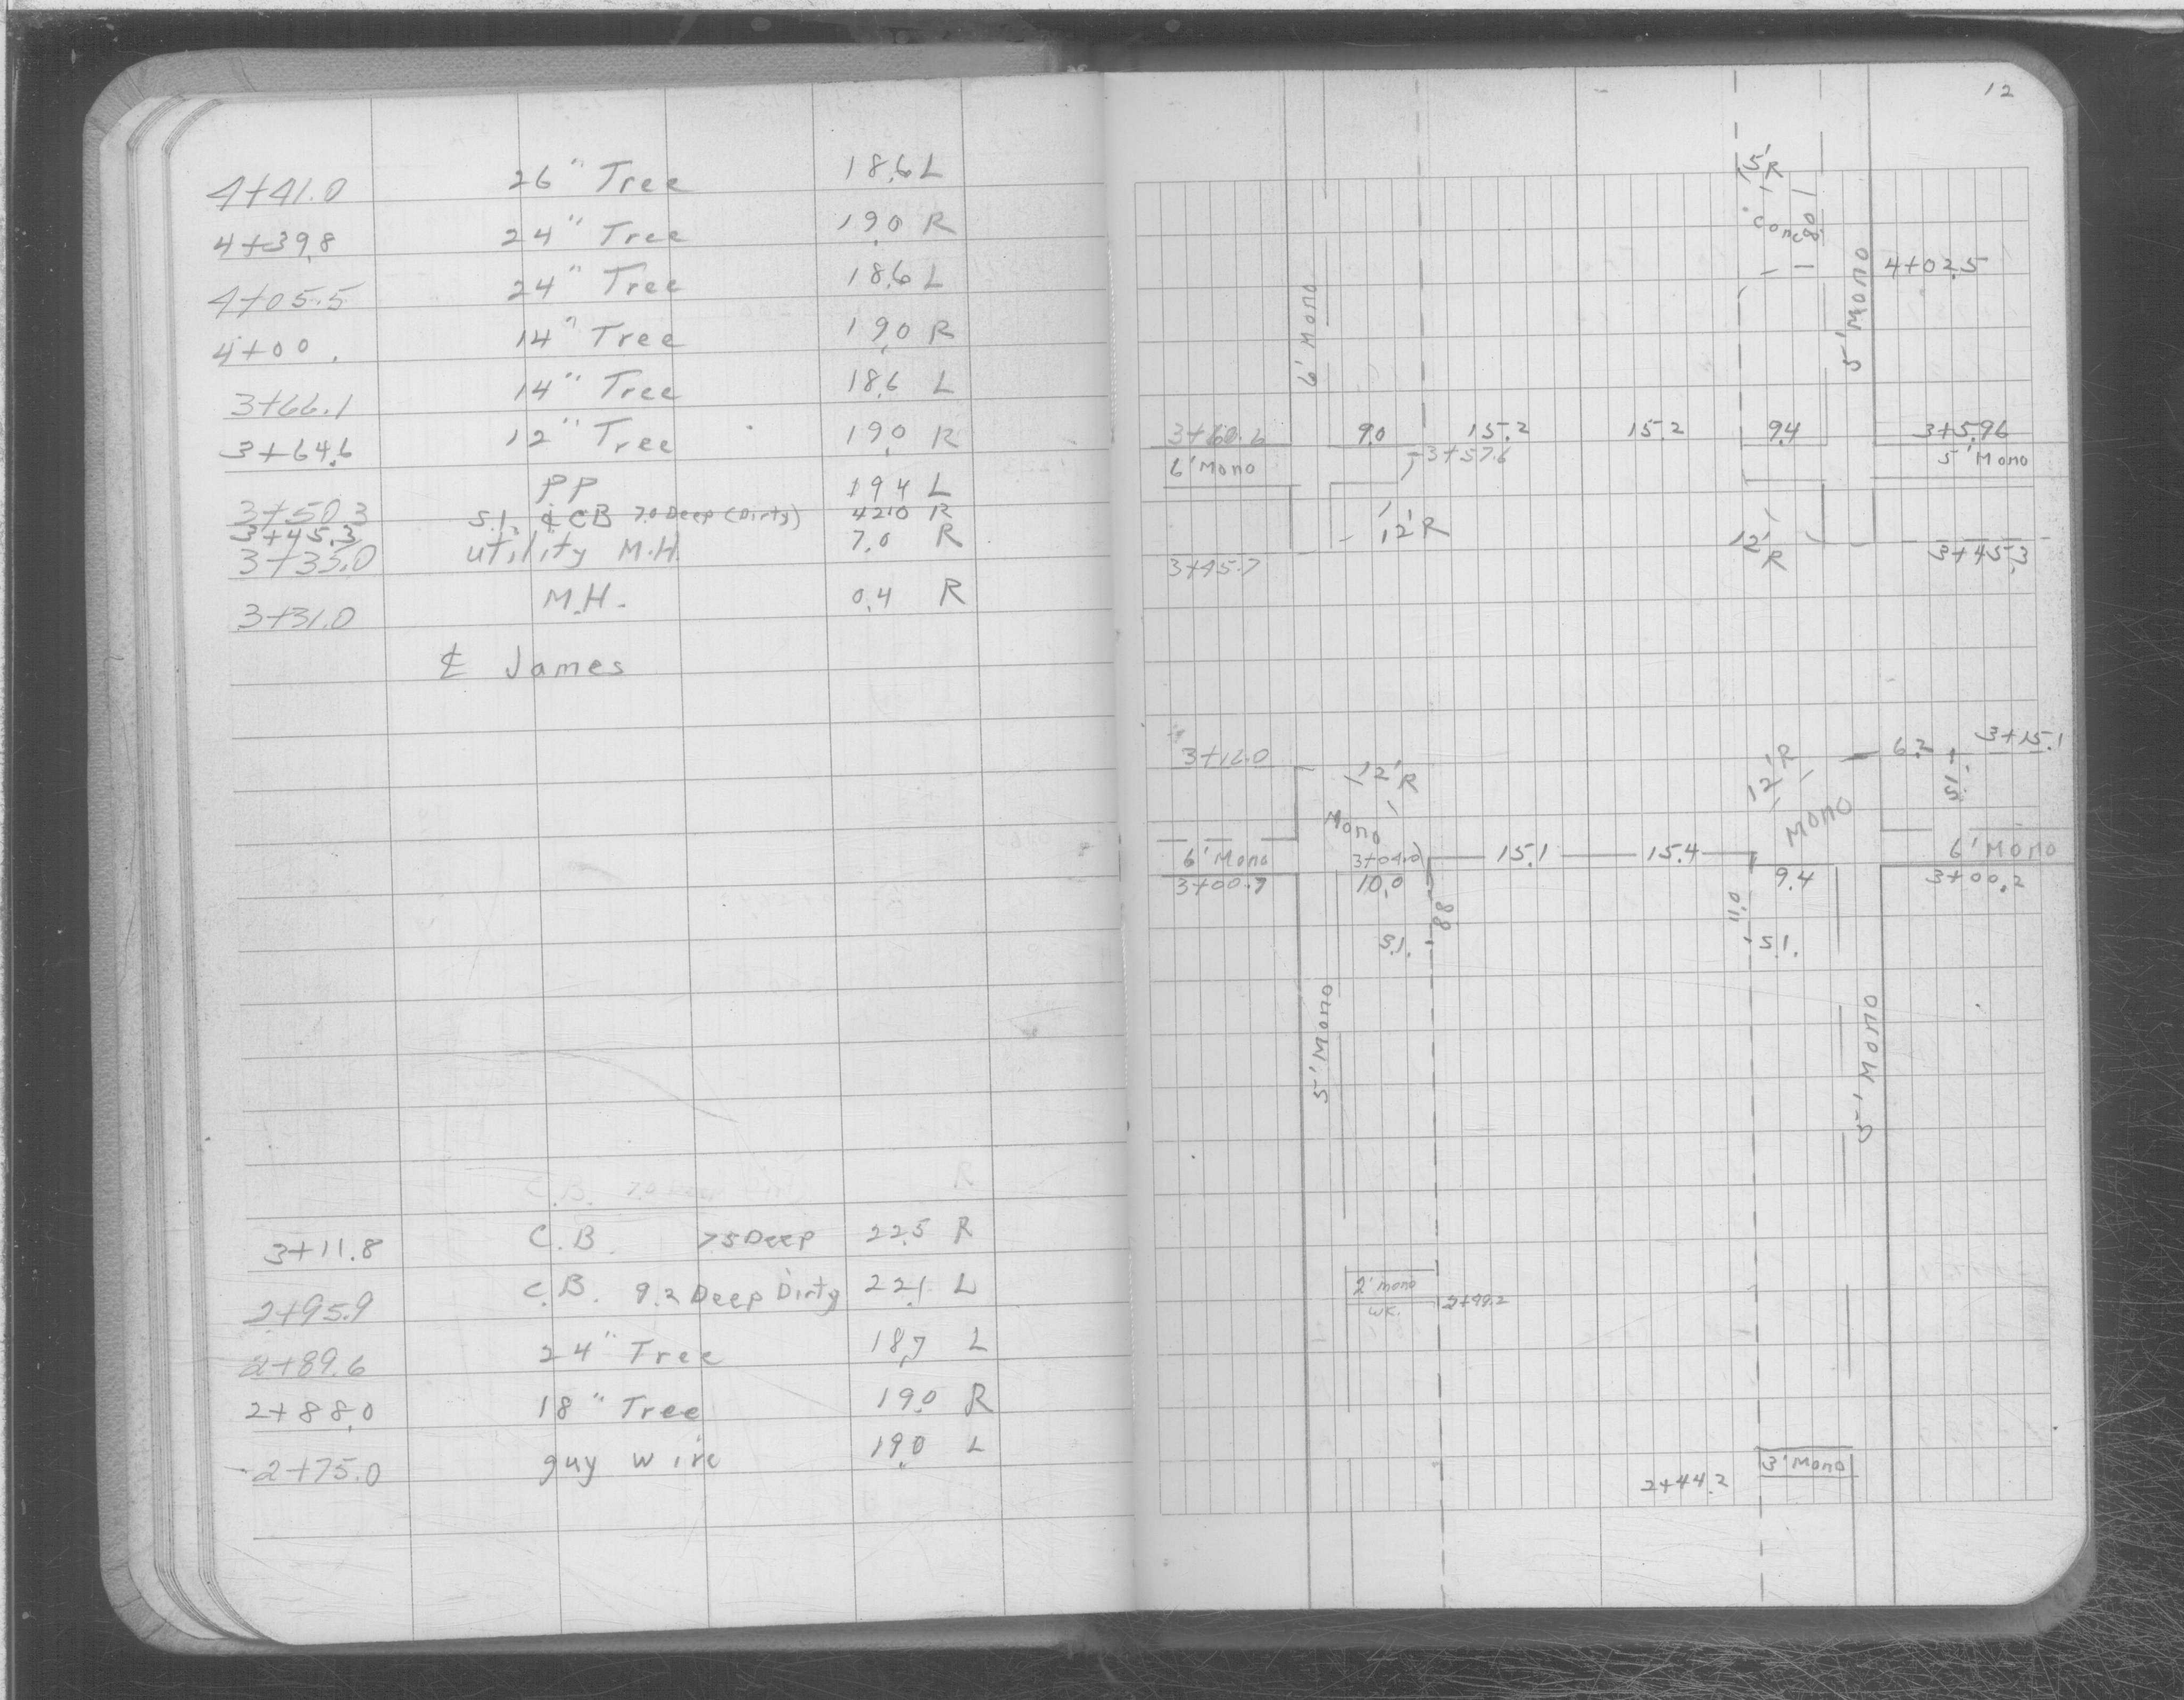 4+41.0 26" Tree 18.6 L
4+39.8 24" Tree 19.0 R
4+05.5 24" Tree 18.6 L
4+00. 14" Tree 19.0 R
3+66.1 14" Tree 18.6 L
3+64.6 12" Tree 19.0 R
3+50.3 PP 19.4 L
3+45.3 S.I. & CB 7.0 Deep (Dirty) 42.0 R
3+35.0 utility M.H. 7.0 R
3+31.0 M.H. 0.4 R
℄ James
C.B. 7.0 Deep R
3+11.8 C.B. 7.5 Deep 22.5 R
2+95.9 C.B. 9.2 Deep Dirty 22.1 L
2+89.6 24" Tree 18.7 L
2+88.0 18" Tree 19.0 R
2+75.0 guy wire 19.0 L
12
5'R
Conc.
8.0
4+02.5
6' Mono
5' Mono
3+60.6 9.0 15.2 15.2 9.4 3+59.6
6' Mono 3+57.6 5' Mono
12'R 12'R
3+45.7 3+45.3
3+12.0 12'R 12'R 6.2 3+15.1
S.I.
Mono Mono
6' Mono 3+04.0 15.1 15.4 6' Mono
3+00.7 10.0 9.4 3+00.2
8.8 11.0
S.I. S.I.
5' Mono 5' Mono
2' mono
WK. 2+99.2
3' Mono
2+44.2